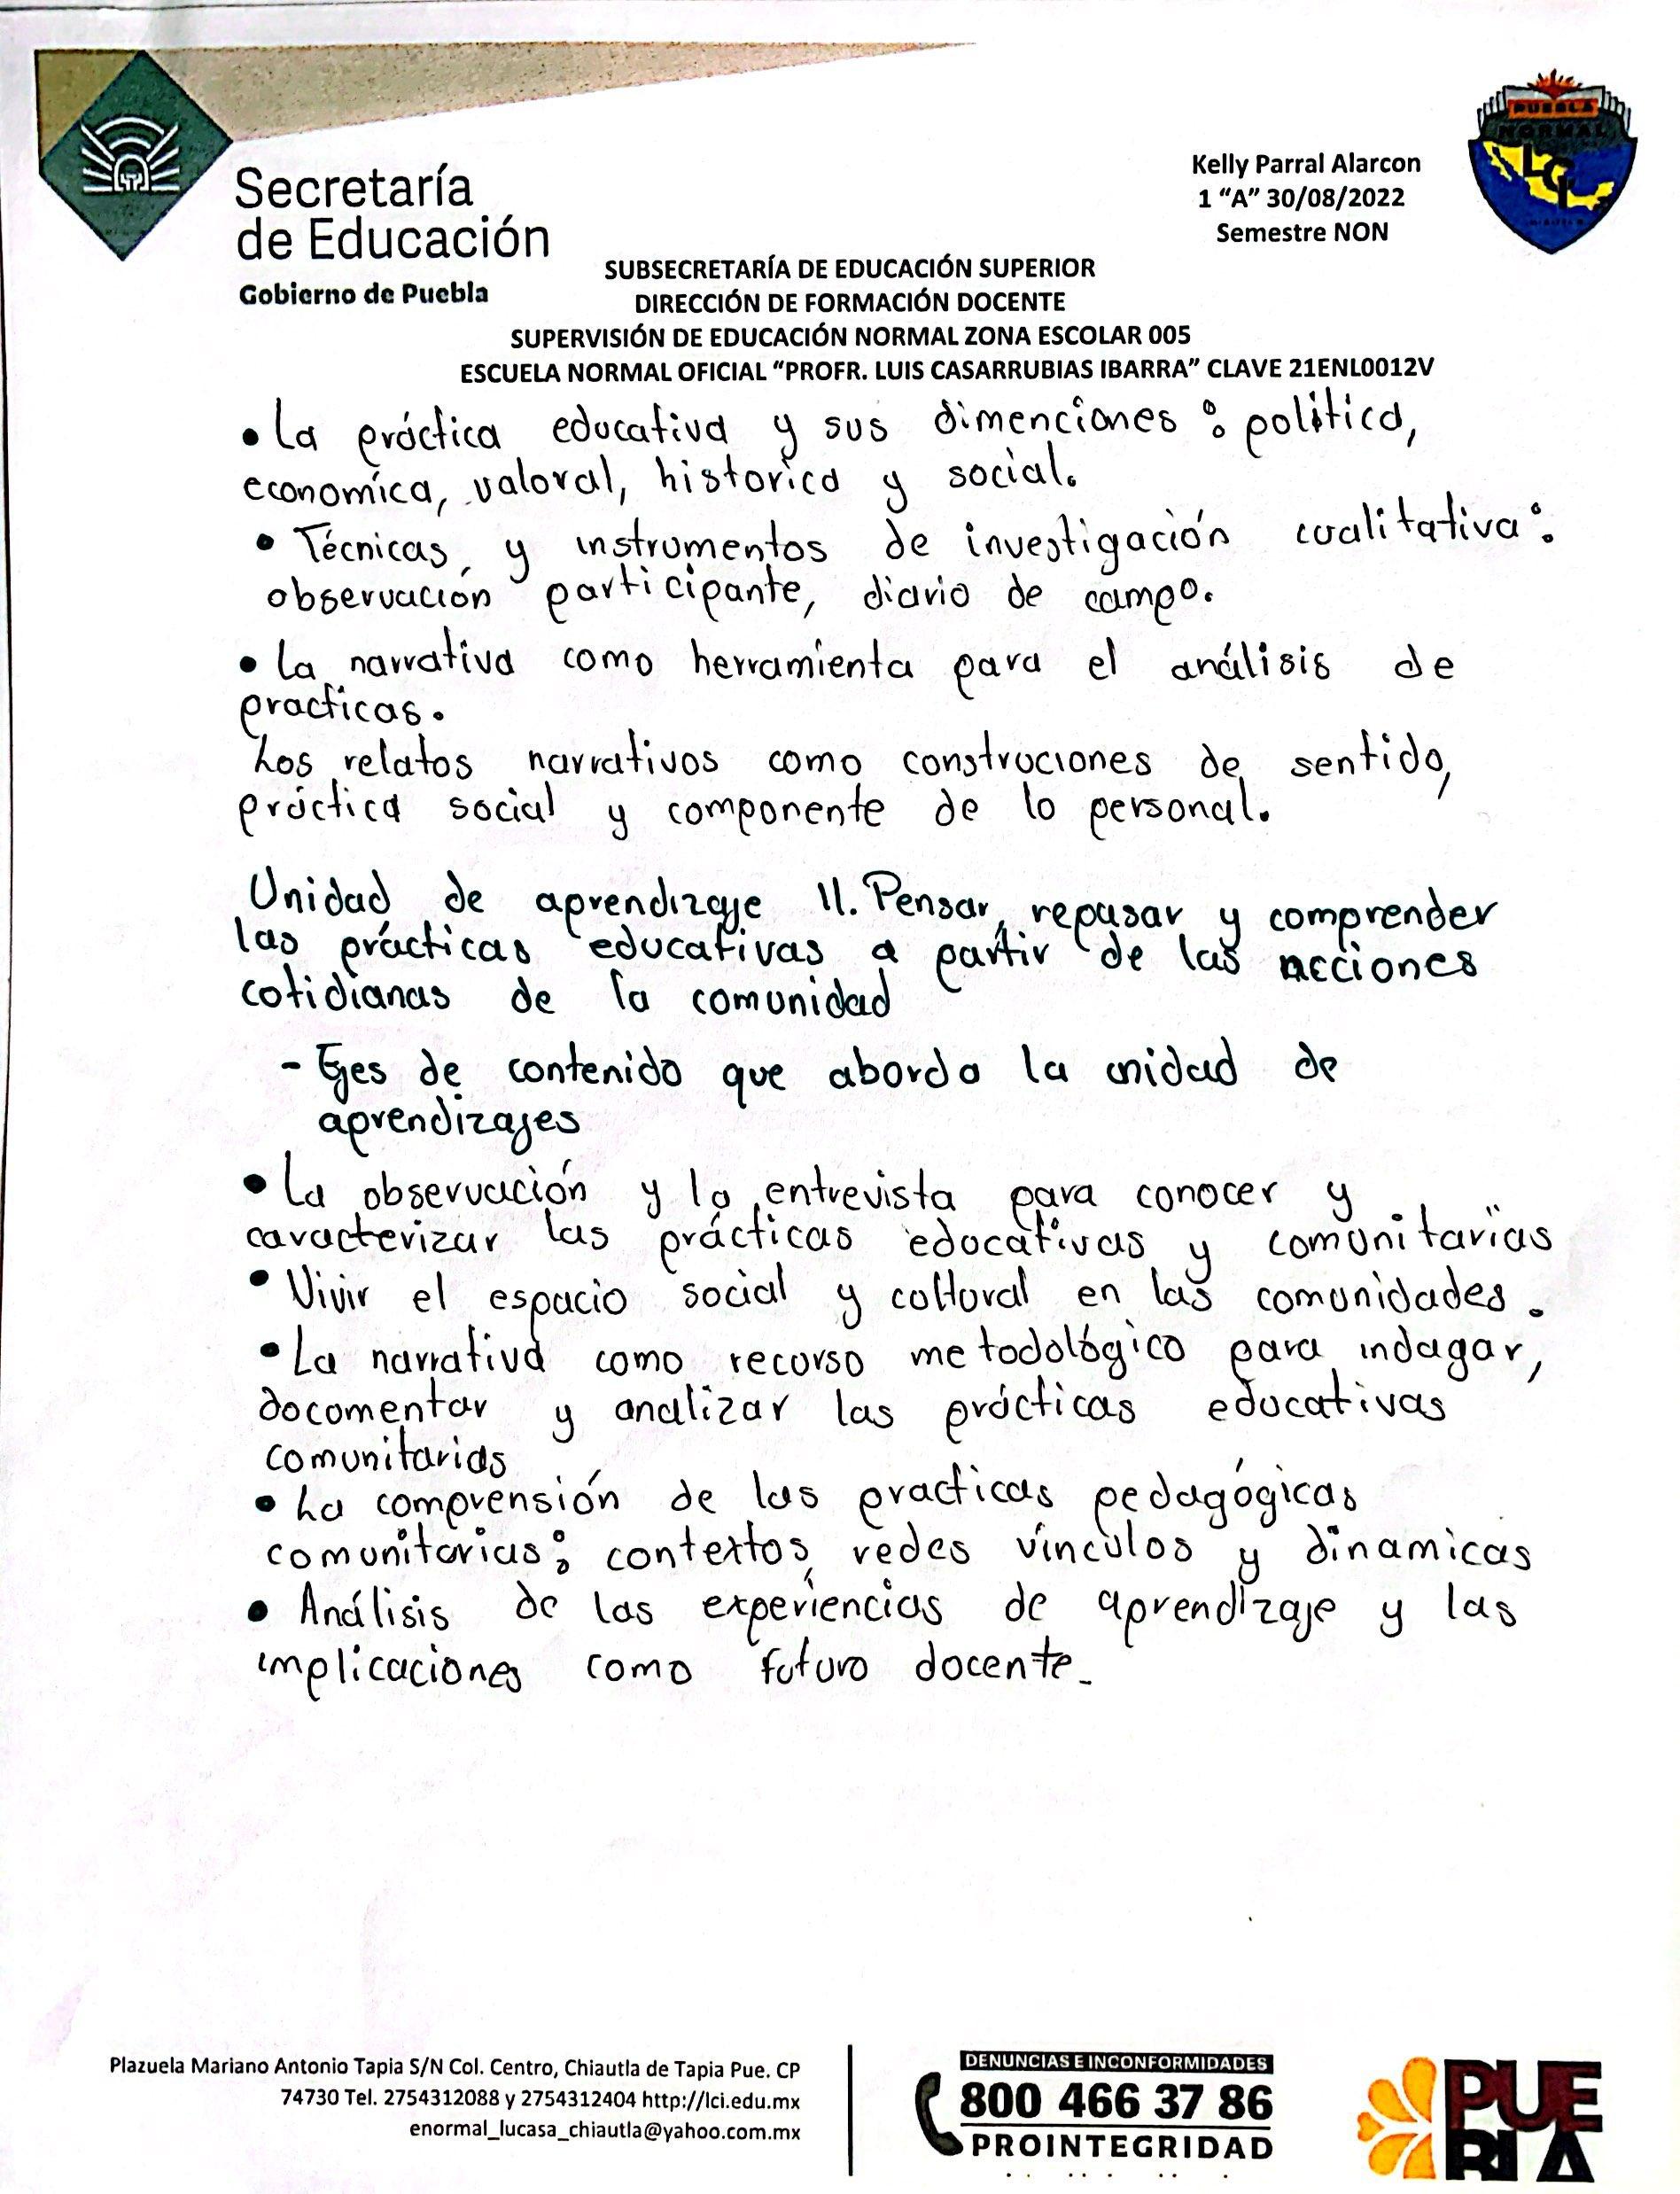 Secretaría
de Educación
Gobierno de Puebla
PUEBLA
NORMAL
LCI
Kelly Parral Alarcon
1 “A” 30/08/2022
Semestre NON
SUBSECRETARÍA DE EDUCACIÓN SUPERIOR
DIRECCIÓN DE FORMACIÓN DOCENTE
SUPERVISIÓN DE EDUCACIÓN NORMAL ZONA ESCOLAR 005
ESCUELA NORMAL OFICIAL “PROFR. LUIS CASARRUBIAS IBARRA” CLAVE 21ENL0012V
• La práctica educativa y sus dimenciones: política,
economica, valoral, historica y social.
• Técnicas y instrumentos de investigación cualitativa:
observación participante, diario de campo.
• La narrativa como herramienta para el análisis de
practicas.
Los relatos narrativos como construciones de sentido,
práctica social y componente de lo personal.
Unidad de aprendizaje II. Pensar, repasar y comprender
las prácticas educativas a partir de las acciones
cotidianas de la comunidad
- Ejes de contenido que aborda la unidad de
aprendizajes
• La observación y la entrevista para conocer y
caracterizar las prácticas educativas y comunitarias
• Vivir el espacio social y cultural en las comunidades.
• La narrativa como recurso metodológico para indagar,
documentar y analizar las prácticas educativas
comunitarias
• La comprensión de las practicas pedagógicas
comunitarias; contextos, redes vínculos y dinamicas
• Análisis de las experiencias de aprendizaje y las
implicaciones como futuro docente.
Plazuela Mariano Antonio Tapia S/N Col. Centro, Chiautla de Tapia Pue. CP
74730 Tel. 2754312088 y 2754312404 http://lci.edu.mx
enormal_lucasa_chiautla@yahoo.com.mx
DENUNCIAS E INCONFORMIDADES
800 466 37 86
PROINTEGRIDAD
PUE
BLA